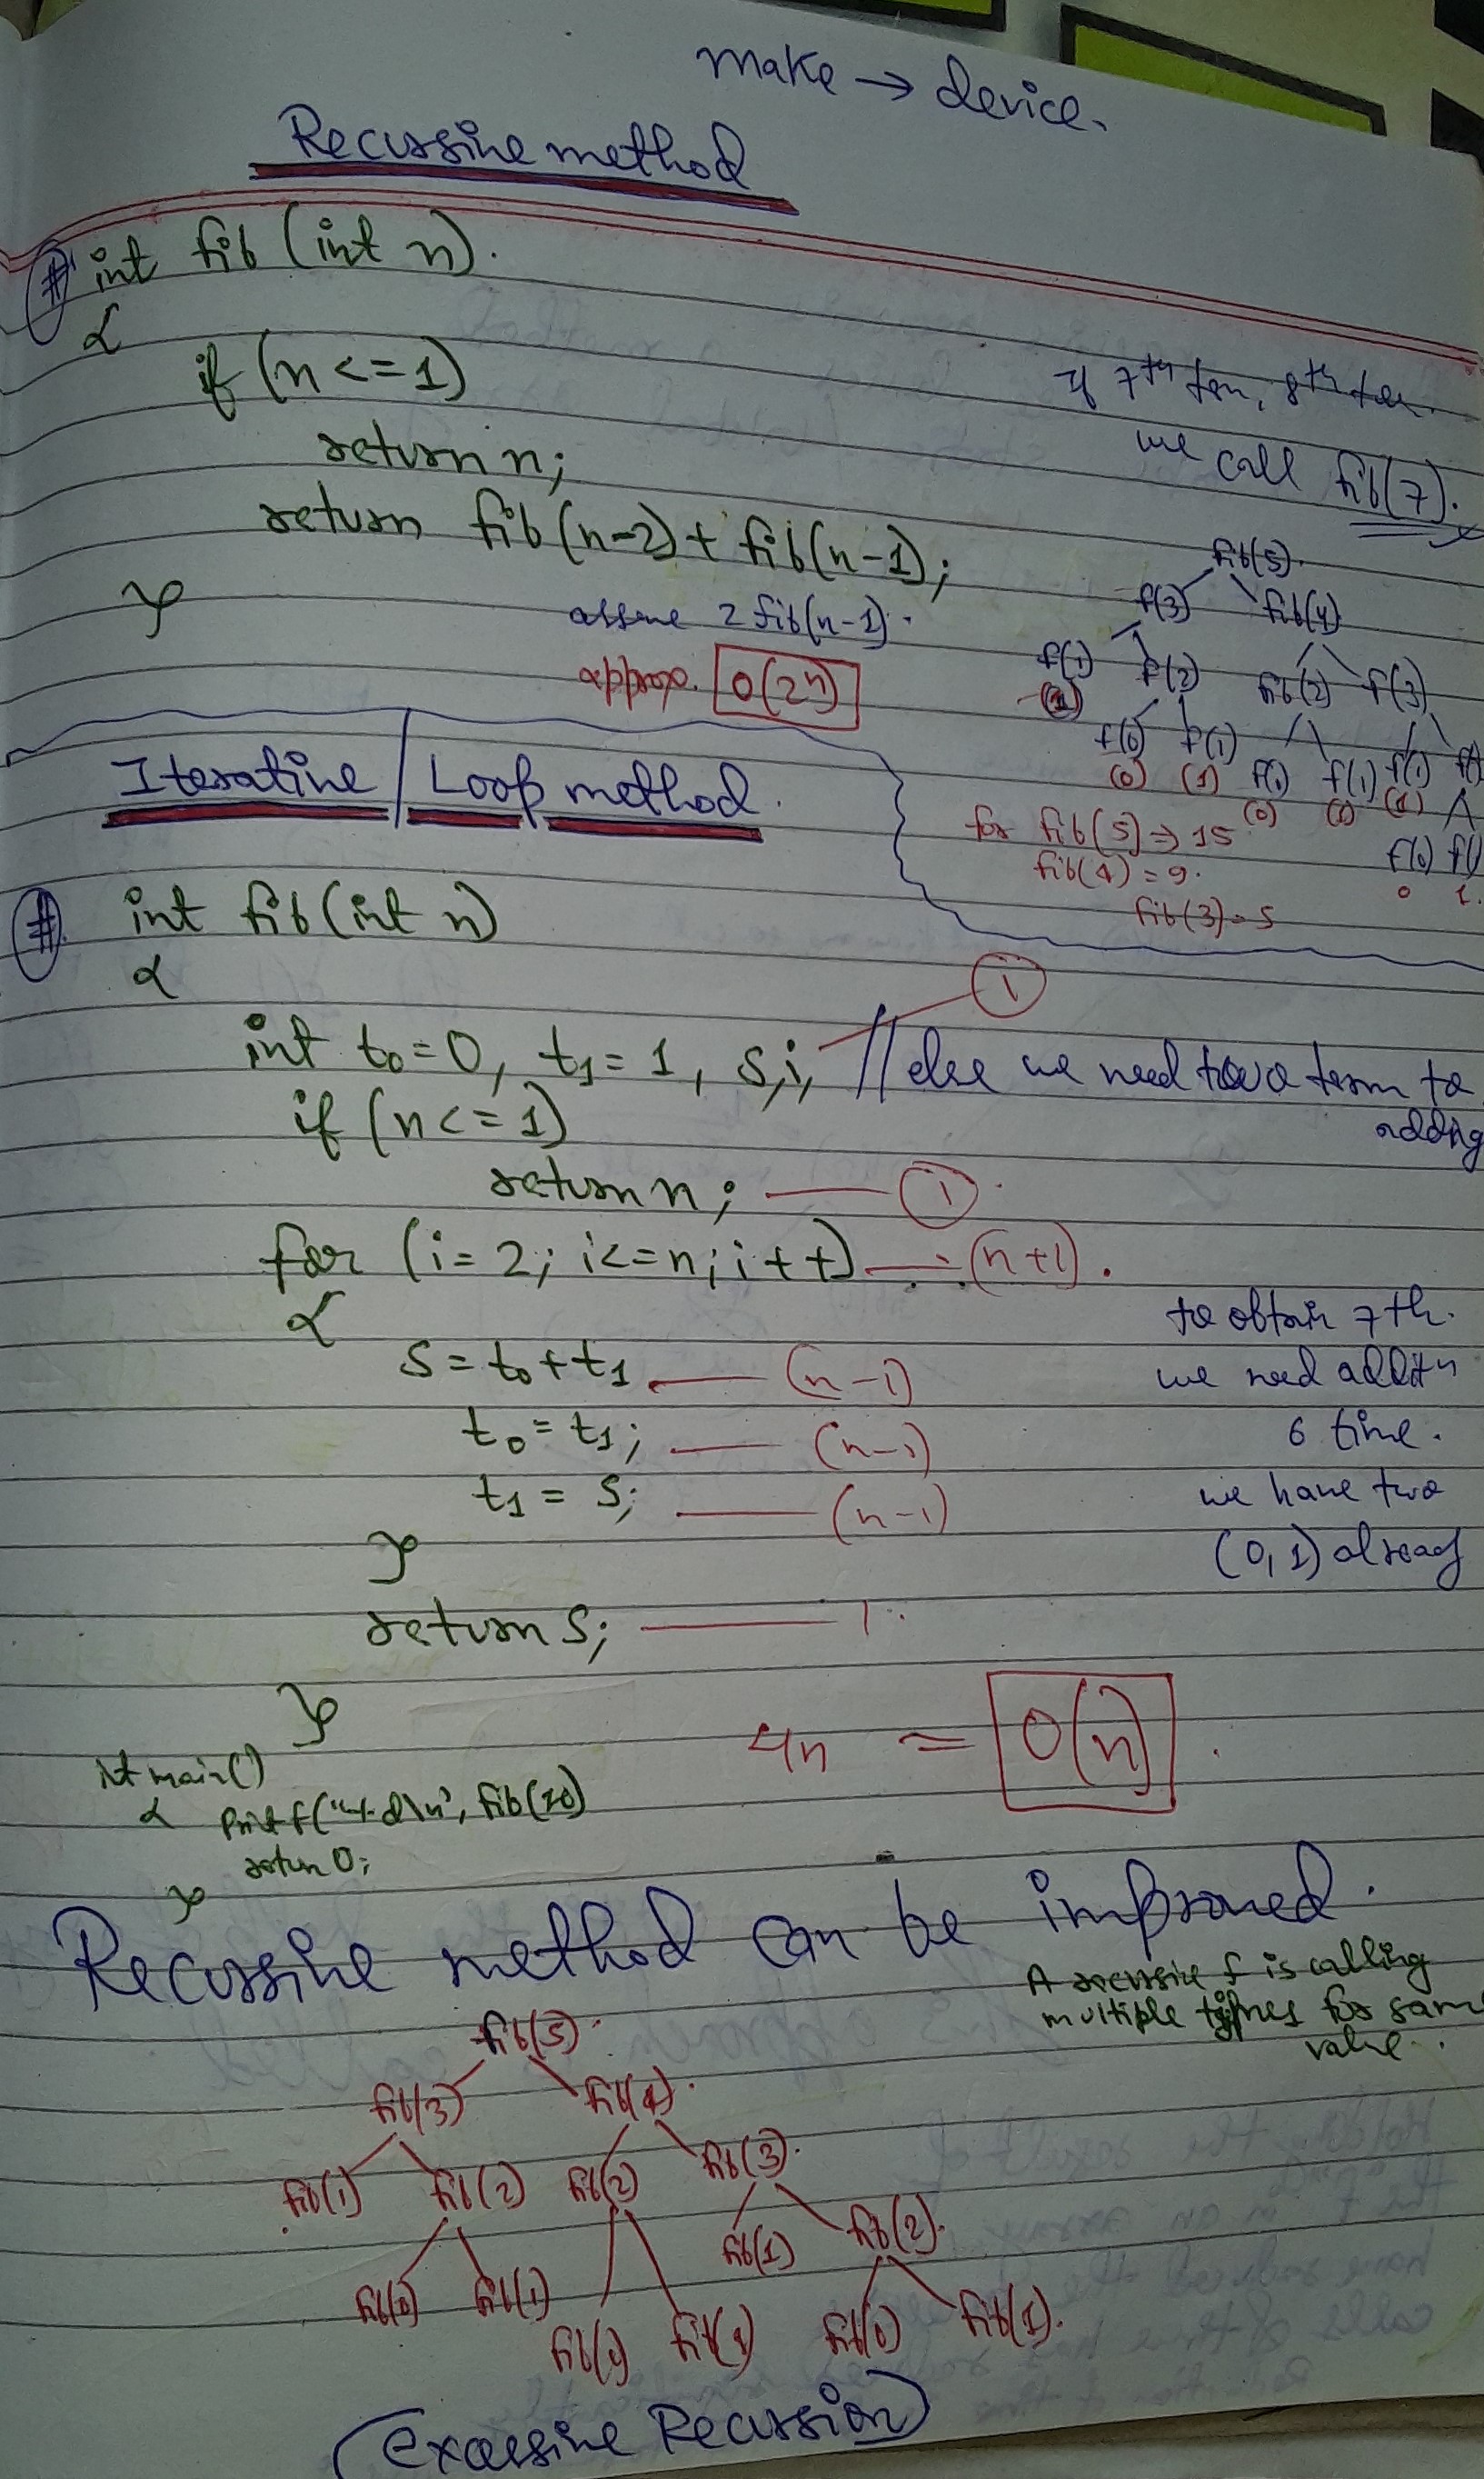 make → device.
Recursive method
# int fib (int n).
{
if (n <= 1)
return n;
return fib(n-2) + fib(n-1);
}
assume 2 fib(n-1).
approx. O(2ⁿ)
If 7th term, 8th
we call fib(7).
fib(5)
f(3) fib(4)
f(1) f(2) fib(2) f(3)
(1)
f(0) f(1) f(0) f(1) f(1)
(0) (1) (0) (1) (1)
f(0) f()
0 1.
for fib(5) ⇒ 15
fib(4) = 9.
fib(3) = 5
Iterative / Loop method.
# int fib(int n)
{
int t0 = 0, t1 = 1, s, i, 1
// else we need two term to
adding
if (n <= 1)
return n; — 1
for (i = 2; i <= n; i++) — (n+1).
{
s = t0 + t1 — (n-1)
t0 = t1; — (n-1)
t1 = s; — (n-1)
}
return s; — 1
}
to obtain 7th.
we need additn
6 time.
we have two
(0, 1) already
4n = O(n).
int main()
{ printf("%d\n", fib(10)
retun 0;
}
Recursive method can be improved.
A recursive f is calling
multiple times for same
value..
fib(5).
fib(3) fib(4).
fib(1) fib(2) fib(2) fib(3).
fib(0) fib(1) fib(1) fib(2).
fib(0) fib(1) fib(0) fib(1).
(excessive Recursion)